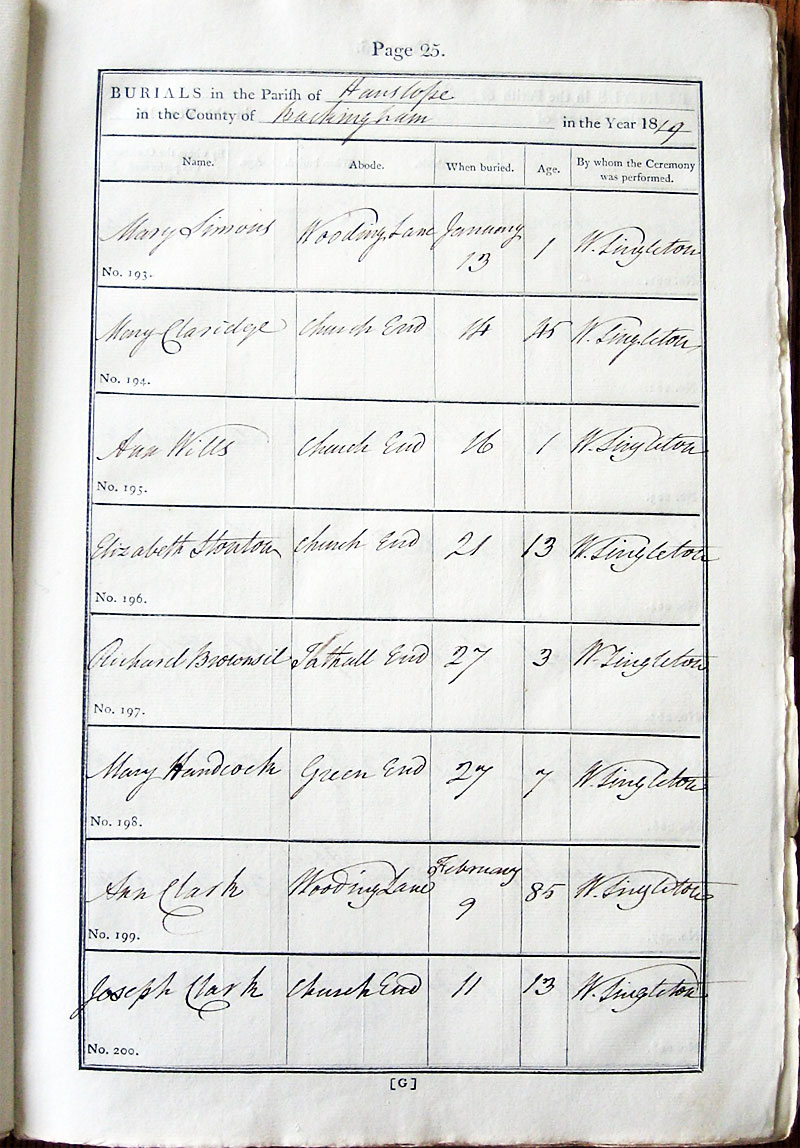 Page 25.
BURIALS in the Parish of Hanslope
in the County of Buckingham in the Year 1819
Name. Abode. When buried. Age. By whom the Ceremony was performed.
Mary Simons Wooding Lane January 13 1 W. Singleton
No. 193.
Mary Claridge Church End 14 45 W. Singleton
No. 194.
Ann Wills Church End 16 1 W. Singleton
No. 195.
Elizabeth Stonton Church End 21 13 W. Singleton
No. 196.
Richard Brownsil Tathall End 27 3 W. Singleton
No. 197.
Mary Handcock Green End 27 7 W. Singleton
No. 198.
Ann Clark Wooding Lane February 9 85 W. Singleton
No. 199.
Joseph Clark Church End 11 13 W. Singleton
No. 200.
[G]